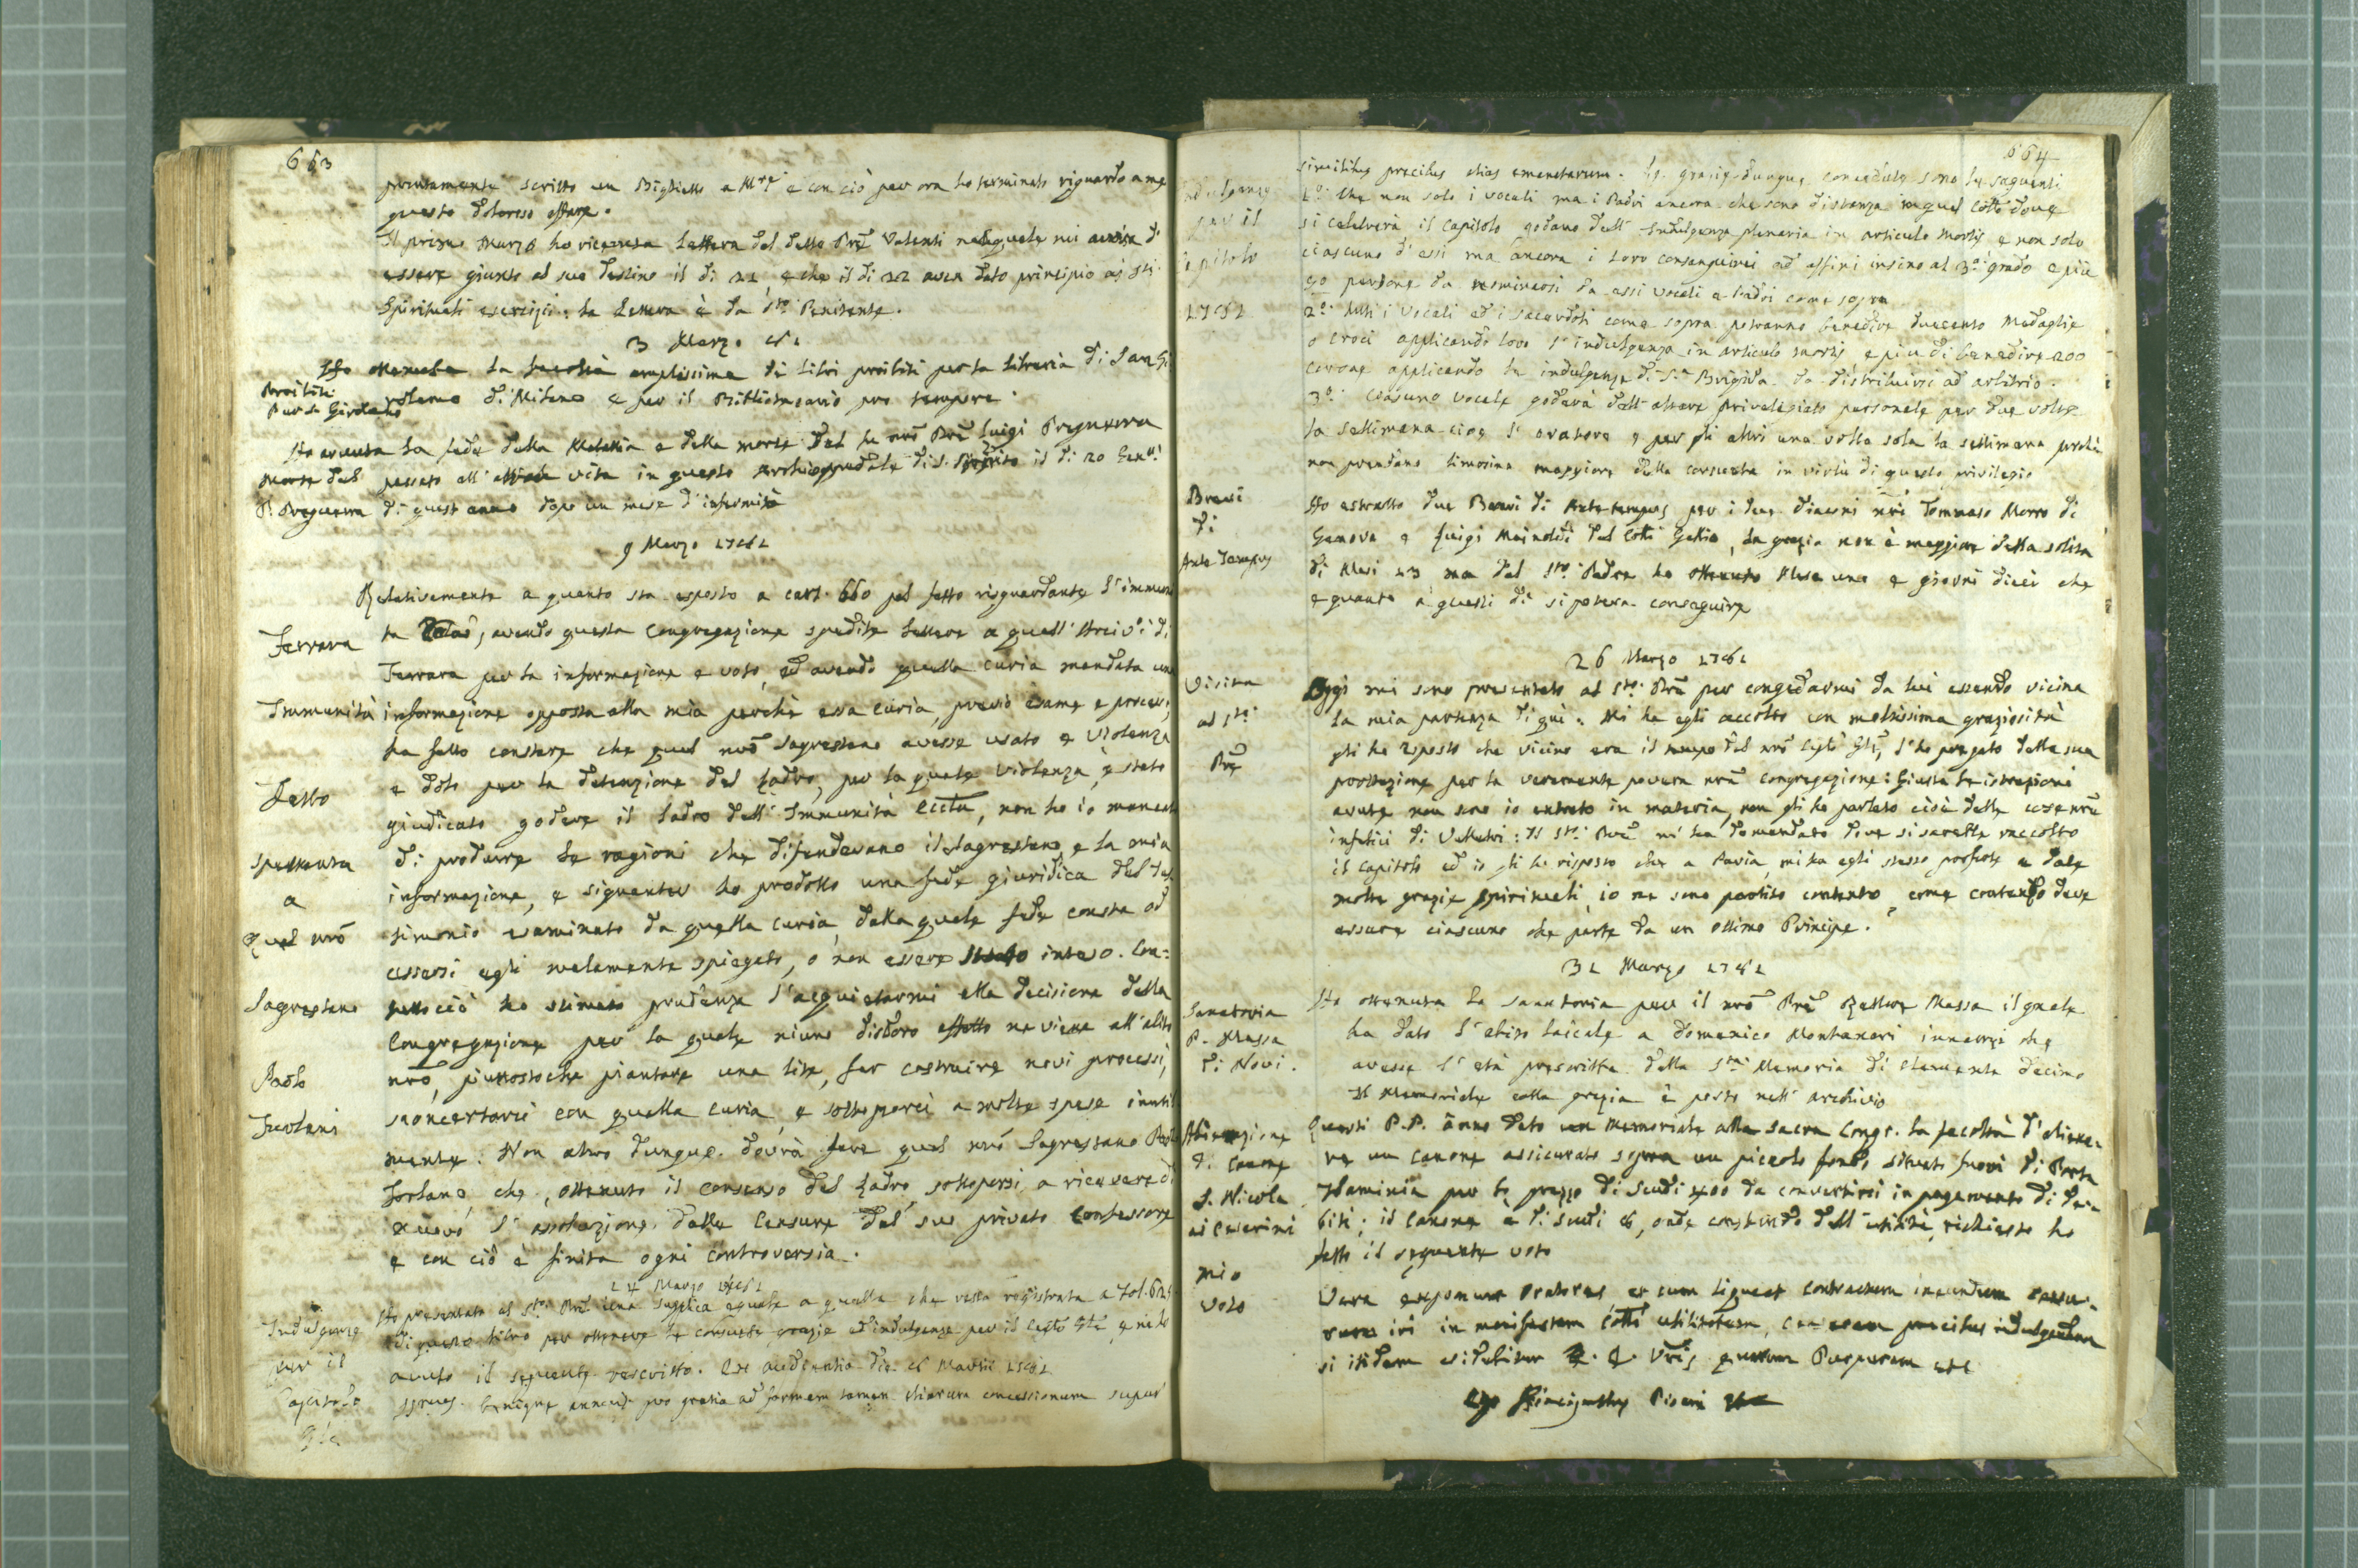 663
prontamente scritto un Biglietto a M.re e con ciò per ora ho terminato riguardo a me
questo doloroso affare.
Il primo Marzo ho ricevuta Lettera del detto Pre Valenti nella quale mi avvisa di
essere giunto al suo destino il di 21, e che il di 22 avea dato principio a' Sti
Spirituali esercizi: la Lettera è da Sto Penitente.
3 Marzo
Proibiti
Per S. Girolamo
Ho ottenuta la facoltà amplissima di libri proibiti per la libraria di San Gi
rolamo di Milano e per il Bibliotecario pro tempore.
Morte del
P. Preguerra
Ho avuta la fede della Malattia e della morte del fu nro Pre Luigi
passato all' altra vita in questo Archiospedale di S. Spirito il di 20 Gen.o
di quest anno dopo un mese d'infermità
9 Marzo 1761
Ferrara
Immunità
Fatto
Spettante
a
quel nrõ
Sagrestano
Paolo
Frolani
Relativamente a quanto sta esposto a cart. 660 pel fatto risguardante l'immuni
ta, avendo questa Congregazione spedite lettere a quell' Arciv.o di
Ferrara per la informazione e voto, ed avendo quella curia mandata una
informazione opposta alla mia perchè essa curia, previo esame e processo,
ha fatto constare che quel nrõ Sagrestano avesse usato e violenza
e dolo per la detenzione del Ladro, per la quale violenza, è stato
giudicato godere il Ladro dell' Immunità, non ho io mancato
di produrre le ragioni che difendevano il Sagrestano, e la mia
informazione, e signanter ho prodotto una fede giuridica del Tes
timonio esaminato da quella curia, dalla quale fede consta od
essersi egli malamente spiegato, o non essere stato inteso. Con=
tuttociò ho stimato prudenza l'acquietarmi alla decisione della
Congregazione per la quale niuno disdoro affatto ne viene all'abito
nrõ, piuttostoche piantare una lite, far costruire novi processi,
sconcertarci con quella curia, e sottoporci a molte spese inutil
mente. Non altro dunque dovrà fare quel nrõ Sagrestano
che, ottenuto il consenso del Ladro, sottoporsi a ricevere di
nuovo l'assoluzione dalle Censure dal suo privato Confessore
e con ciò è finita ogni controversia.
14 Marzo 1761
Indulgenze
per il
Capitolo
Gle
Ho presentata al Sto Pre una supplica eguale a quella che resta registrata a fol.
di questo libro per ottenere le consuete grazie ed indulgenze per il Caplo Gle e ne ho
avuto il seguente rescritto. Ex audientia die Martii 1761
Ssmus benigne annuit pro gratia ad formam tamen aliarum concessionum super
664
Indulgenze
per il
Capitolo
1761
similibus precibus alias emanatarum. Le grazie dunque concedute sono le seguenti
1.o Che non solo i Vocali ma i Padri ancora che sono di stanza in quel Collo dove
si celebrerà il Capitolo godano dell' Indulgenza plenaria in articulo mortis e non solo
ciascuno d'essi ma ancora i loro consanguinei ed affini insino al 3.o grado e più
90 persone da nominarsi da essi Vocali e Padri come sopra
2.o tutti i Vocali ed i sacerdoti come sopra potranno benedire duecento Medaglie
o croci applicando loro l'indulgenza in articulo mortis e più di benedire 200
Corone applicando le indulgenze di S.a Brigida da distribuirsi ad arbitrio.
3.o Ciascuno Vocale goderà dell' altare privilegiato personale per due volte
la settimana cioe l'oratore e per gli altri una volta sola la settimana perchè
non prendano limosina maggiore della consueta in virtù di questo privilegio
Brevi
di
Ante Tempus
Ho estratto due Brevi di Ante tempus per i due diaconi nrì Tommaso Morro di
Genova e Luigi Mainoldi del Collo Gallio, la grazia non è maggiore della solita
di Mesi 13 ma dal Sto Padre ho ottenuto Mese uno e giorni dieci che
e quanto a questi di si poteva conseguire
26 Marzo 1761
Visita
al Sto
Pre
Oggi mi sono presentato al Sto Pre per congedarmi da lui essendo vicina
la mia partenza di quì. Mi ha egli accolto con moltissima graziosità
gli ho esposto che vicino era il tempo del nrõ Caplo Gle, l'ho pregato della sua
protezione per la veramente povera nrã Congregazione: Giusta le istruzioni
avute non sono io entrato in materia, non gli ho parlato cioè delle cose nrẽ
infelici di Velletri: Il Sto Pre mi ha domandato dove si sarebbe raccolto
il Capitolo ed io gli ho risposto che a Pavia, mi ha egli stesso profferte e date
molte grazie spirituali, io ne sono partito contento, come contento deve
essere ciascuno che parte da un ottimo Principe.
31 Marzo 1761
Sanatoria
P. Massa
di Novi.
Ho ottenuta la sanatoria per il nrõ Pre Rettore Massa il quale
ha dato l'abito laicale a Domenico Montanari innanzi che
avesse l'età prescritta dalla Sta Memoria di Clemente decimo
Il Memoriale colla grazia è posto nell' archivio
Alienazione
di Canone
S. Nicola
ai Cesarini
Questi P.P. ãnno dato un Memoriale alla Sacra Congr. la facoltà d'aliena-
re un Canone assicurato sopra un piccolo fondo situato fuori di Porta
Flaminia per lo prezzo di Scudi da convertirsi in pagamento di de-
biti; il Canone è di scudi, onde constando dell' utilità, richiesto ho
fatto il seguente voto
mio
voto
Vera exponunt Oratores, et cum liqueat contractum ineundum
iri in manifestam Colli utilitatem, precibus indulgendum
si itidem videbitur E. E. Vris quarum Purpuram etc
Ego Hiacinthus Pisani